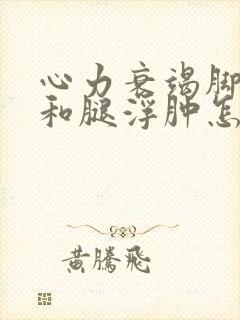 心力衰竭脚
和腿浮肿怎
黄腾飞